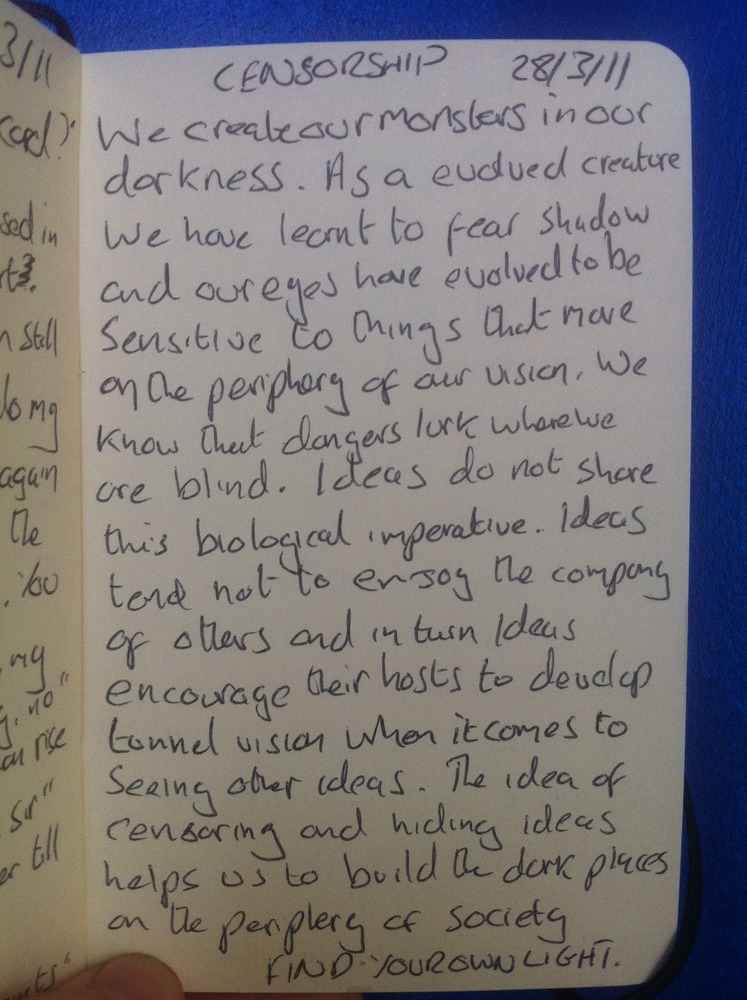 3/11
(cod)?
sed in
n still
do my
again
the
my
no"
on rise
Sir"
er till
CENSORSHIP 28/3/11
We create our monsters in our
darkness. As a evolved creature
We have learnt to fear shadow
and our eyes have evolved to be
Sensitive to things that move
on the periphery of our vision. We
know that dangers lurk where we
are blind. Ideas do not share
this biological imperative. Ideas
tend not to enjoy the company
of others and in turn Ideas
encourage their hosts to develop
tunnel vision when it comes to
Seeing other ideas. The idea of
censoring and hiding ideas
helps us to build the dark places
on the periphery of society
FIND YOUR OWN LIGHT.